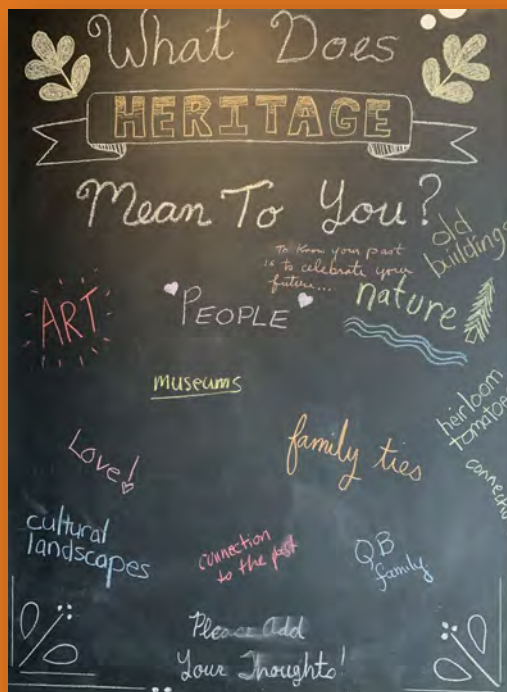 What Does
HERITAGE
Mean To You?
To Know your past
is to celebrate your
future...
old
buildings
ART
PEOPLE
nature
museums
heirloom
tomatoes
Love!
family ties
cultural
landscapes
connection
to the past
QB
family
Please Add
Your Thoughts!